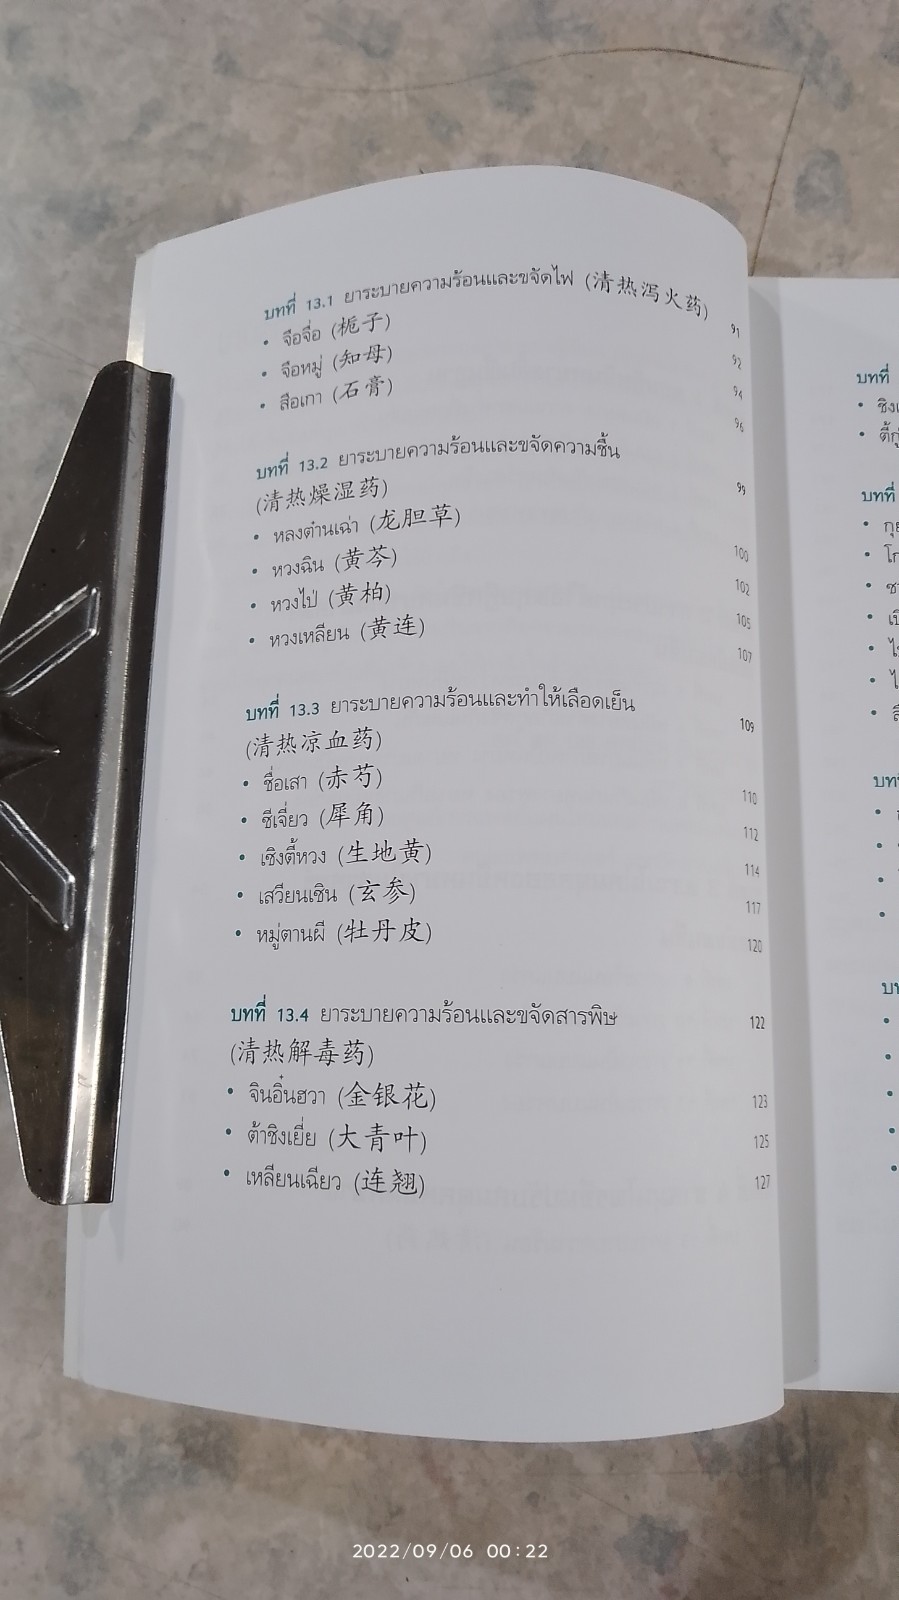 บทที่ 13.1 ยาระบายความร้อนและขจัดไฟ (清热泻火药) 91
• จือจื่อ (栀子) 92
• จือหมู่ (知母) 94
• สือเกา (石膏) 96
บทที่ 13.2 ยาระบายความร้อนและขจัดความชื้น
(清热燥湿药) 99
• หลงต๋านเฉ่า (龙胆草) 100
• หวงฉิน (黄芩) 102
• หวงไป่ (黄柏) 105
• หวงเหลียน (黄连) 107
บทที่ 13.3 ยาระบายความร้อนและทำให้เลือดเย็น 109
(清热凉血药)
• ชื่อเสา (赤芍) 110
• ซีเจี่ยว (犀角) 112
• เซิงตี้หวง (生地黄) 114
• เสวียนเซิน (玄参) 117
• หมู่ตานผี (牡丹皮) 120
บทที่ 13.4 ยาระบายความร้อนและขจัดสารพิษ 122
(清热解毒药)
• จินอิ๋นฮวา (金银花) 123
• ต้าชิงเยี่ย (大青叶) 125
• เหลียนเฉียว (连翘) 127
บทที่
บทที่
2022/09/06 00:22